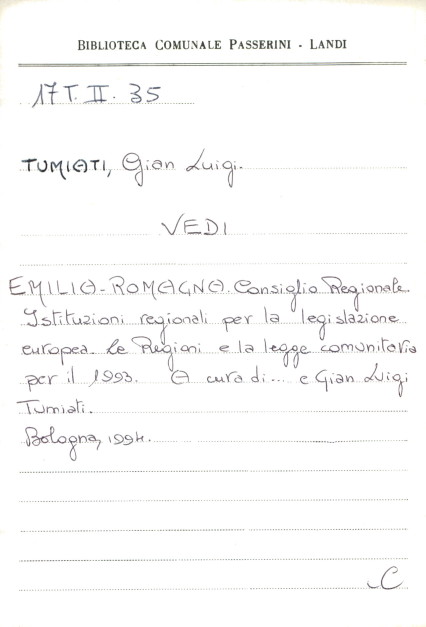 BIBLIOTECA COMUNALE PASSERINI - LANDI
17 T. II. 35
TUMIATI, Gian Luigi.
VEDI
EMILIA-ROMAGNA. Consiglio Regionale.
Istituzioni regionali per la legislazione
europea. Le Regioni e la legge comunitaria
per il 1993. A cura di... e Gian Luigi
Tumiati.
Bologna, 1994.
C